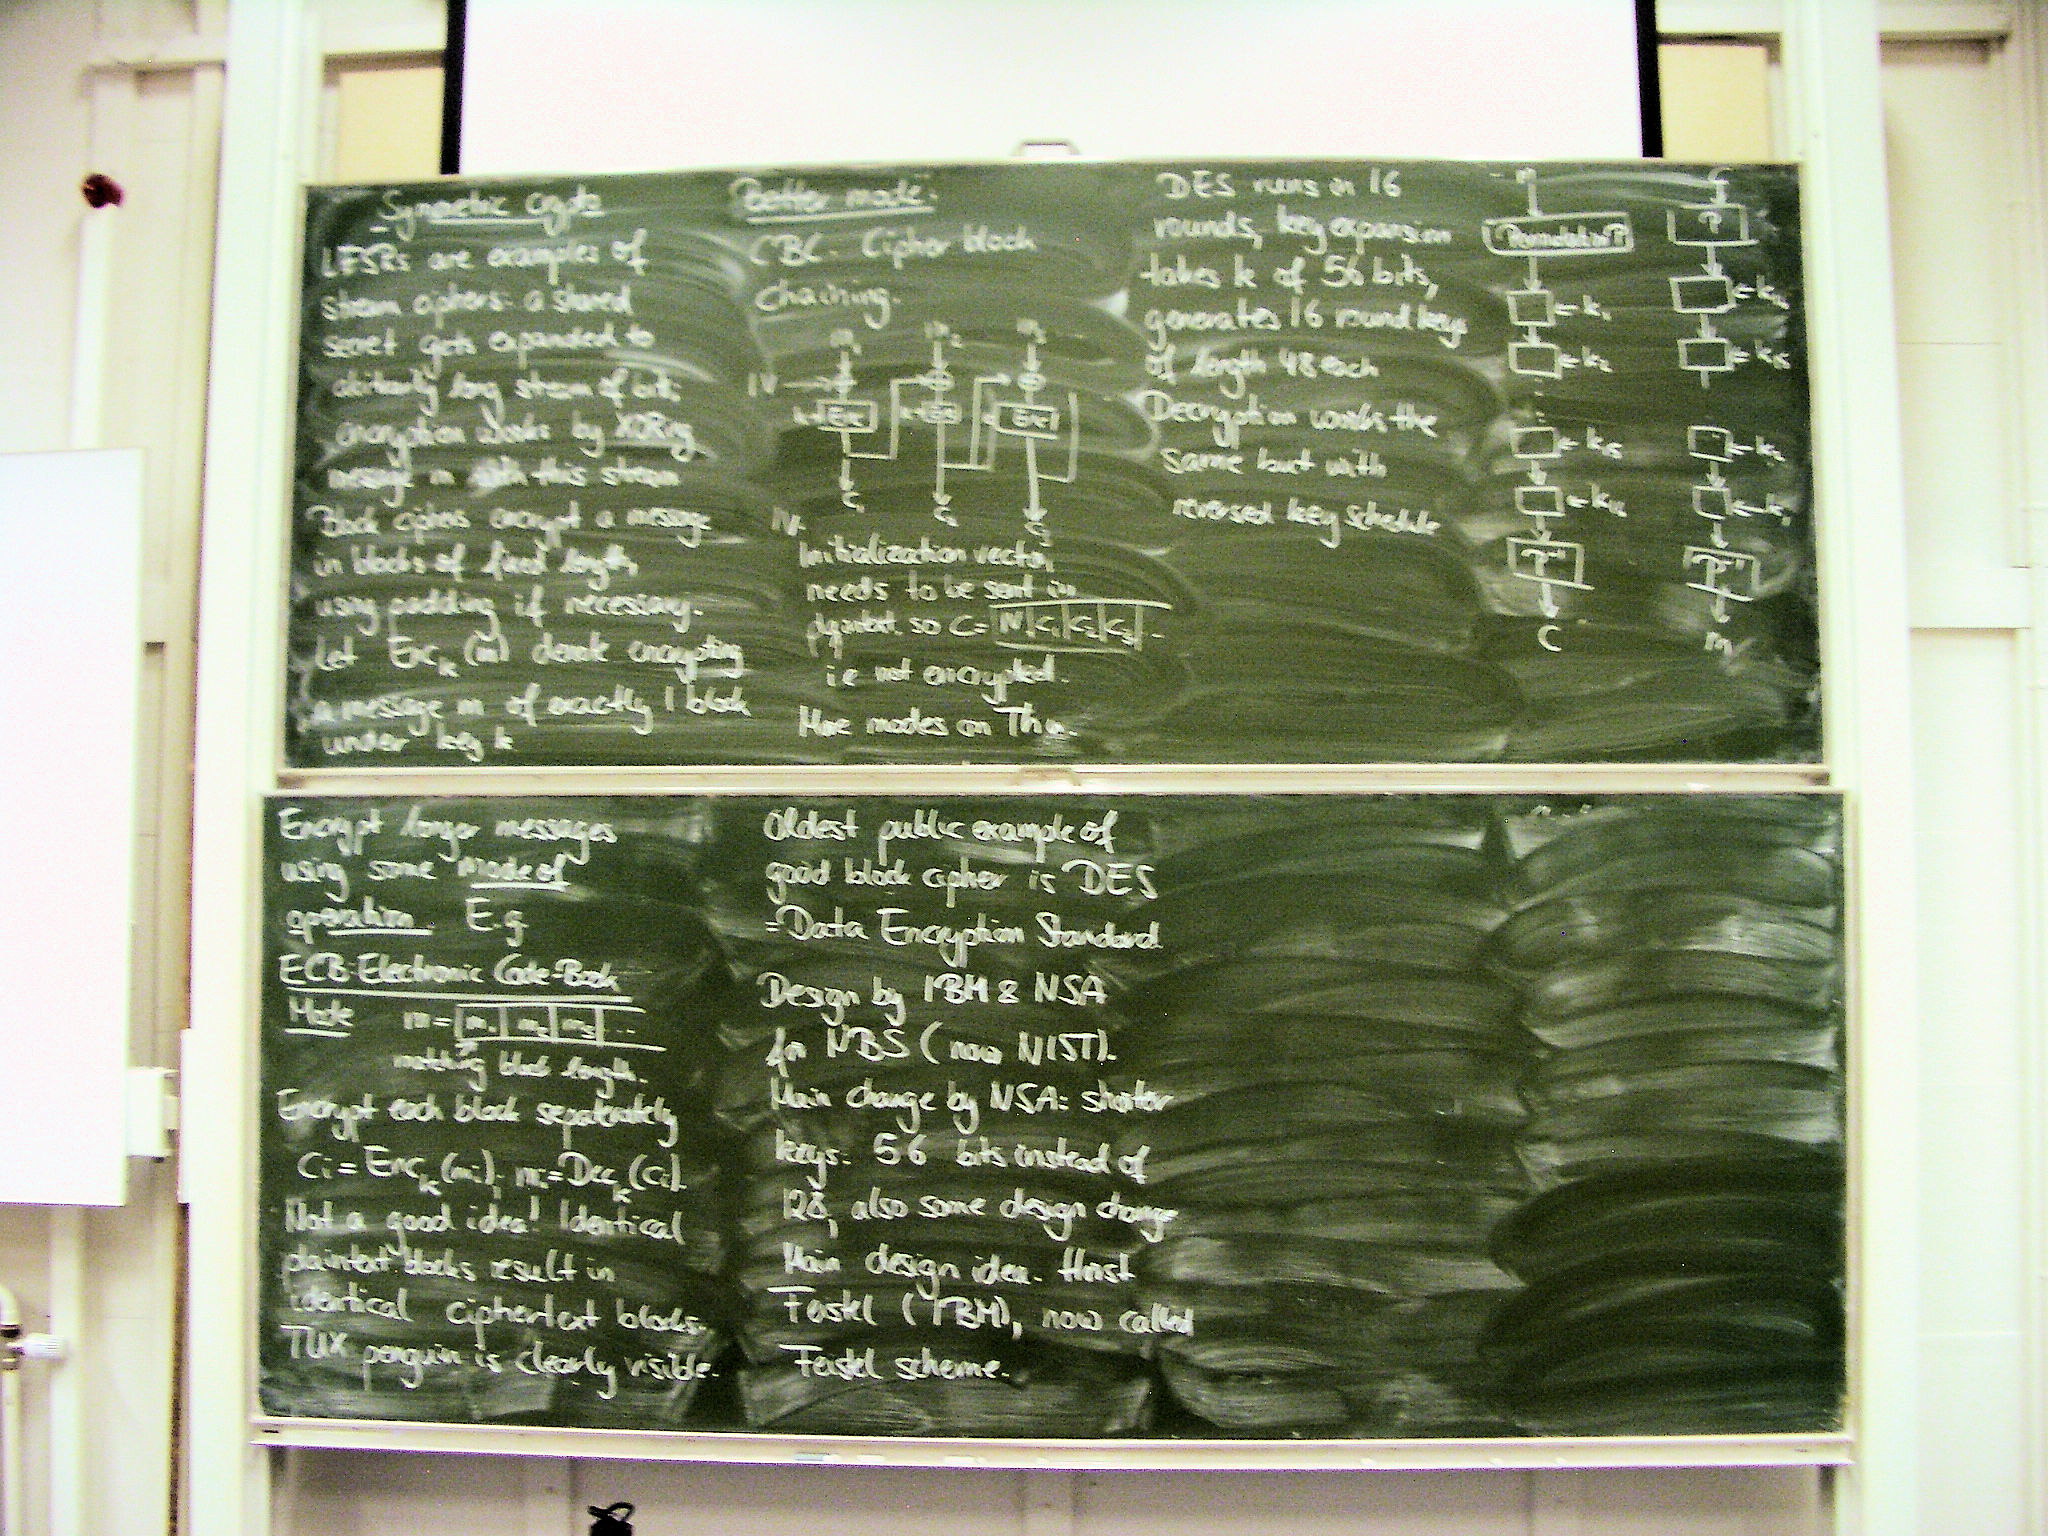 Symmetric crypto
LFSRs are examples of
stream ciphers: a shared
secret gets expanded to
arbitrarily long stream of bits
encryption works by XORing
message m with this stream
Block ciphers encrypt a message
in blocks of fixed length,
using padding if necessary.
Let Enc_k(m) denote encrypting
a message m of exactly 1 block
under key k
Better mode:
CBC: Cipher block
chaining.
m1 m2 m3
IV
Enc Enc Enc
C1 C2 C3
IV:
Initialization vector,
needs to be sent in
plaintext, so C= IV|C1|C2|C3|...
i.e not encrypted.
More modes on Thu.
DES runs in 16
rounds, key expansion
takes k of 56 bits,
generates 16 round keys
of length 48 each
Decryption works the
same but with
reversed key schedule
m
Permutation P
←k1
←k2
←k15
←k16
P^-1
C
C
P
←k16
←k15
←k2
←k1
P^-1
m
Encrypt longer messages
using some mode of
operation. E.g
ECB: Electronic Code-Book
Mode m=|m1|m2|m3|...
matching block length.
Encrypt each block separately
Ci=Enc_k(mi); mi=Dec_k(Ci).
Not a good idea! Identical
plaintext blocks result in
identical ciphertext blocks.
TUX penguin is clearly visible.
Oldest public example of
good block cipher is DES
=Data Encryption Standard
Design by IBM & NSA
for NBS (now NIST).
Main change by NSA: shorter
keys: 56 bits instead of
128, also some design change
Main design idea: Horst
Feistel (IBM), now called
Feistel scheme.